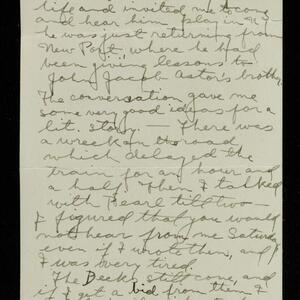 life and invited me to come
and hear him play in N.Y.
he was just returning from
New Port where he had
been giving lessons to
John Jacob Astor's brother.
The conversation gave me
some very good ideas for a
lit. story. — There was
a wreck on the road
which delayed the
train for an hour and
a half. Then I talked
with Pearl till two —
I figured that you would
not hear from me Saturday
even if I wrote then, and
I was very tired.
The Beeks still come, and
if I get a bid from them I